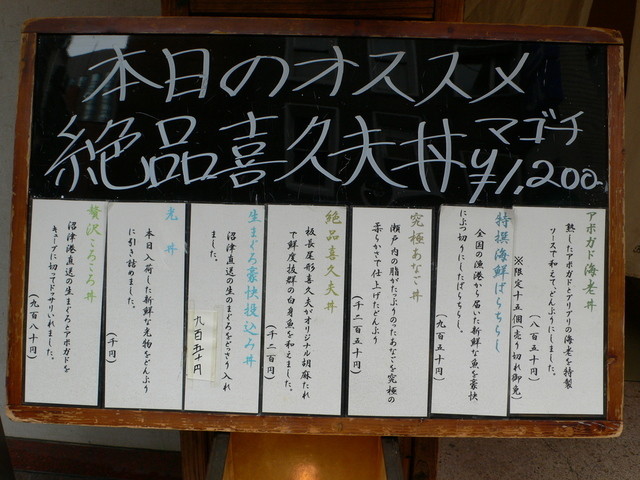 本日のオススメ
絶品喜久夫丼 マゴチ ¥1,200
アボガド海老丼
熟したアボガドとプリプリの海老を特製
ソースで和えて、どんぶりにしました。
(八百五十円)
※限定十五個(売り切れ御免)
特撰海鮮ばらちらし
全国の漁港から届いた新鮮な魚を豪快
にぶつ切りにしたばらちらし。
(九百五十円)
究極あなご丼
瀬戸内の脂がたっぷりのったあなごを究極の
柔らかさで仕上げたどんぶり
(千二百五十円)
絶品喜久夫丼
板長尾形喜久夫がオリジナル胡麻だれ
で鮮度抜群の白身魚を和えました。
(千二百円)
生まぐろ豪快投込み丼
沼津直送の生のまぐろをどっさり入れ
ました。
九百五十円
光丼
本日入荷した新鮮な光物をどんぶり
に引き詰めました。
(千円)
贅沢ころころ丼
沼津港直送の生まぐろとアボガドを
キューブに切ってドッサリ入れました。
(九百八十円)